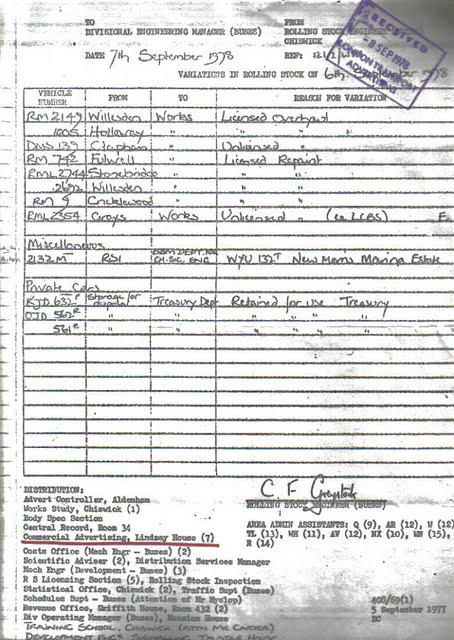 TO FROM
DIVISIONAL ENGINEERING MANAGER (BUSES) ROLLING STOCK
CHISWICK
DATE 7th September 1978 REF:
VARIATIONS IN ROLLING STOCK ON 6th September 1978
RECEIVED
8 SEP 1978
LONDON TRANSPORT
ADVERTISING
VEHICLE NUMBER FROM TO REASON FOR VARIATION
RM 2149 Willesden Works Licensed Overhaul
1005 Holloway " " "
DMS 139 Clapham " Unlicensed "
RM 742 Fulwell " Licensed Repaint
RML 2744 Stonebridge " " "
2692 Willesden " " "
RM 9 Cricklewood " " "
RML 2354 Grays Works Unlicensed " (ex LCBS) E
Miscellaneous
2132 M RSI CH. SIG. ENG WYU 132T New Morris Marina Estate
Private Cars
KJD 632P Storage for disposal Treasury Dept Retained for use Treasury
OJD 562R " " " " " "
561R " " " " " "
DISTRIBUTION:
Advert Controller, Aldenham
Works Study, Chiswick (1)
Body Spec Section
Central Record, Room 34
Commercial Advertising, Lindsay House (7)
Costs Office (Mech Engr - Buses) (2)
Scientific Adviser (2), Distribution Services Manager
Mech Engr (Development - Buses) (3)
R S Licensing Section (5), Rolling Stock Inspection
Statistical Office, Chiswick (2), Traffic Supt (Buses)
Schedules Supt - Buses (Attention of Mr Hyslop)
Revenue Office, Griffith House, Room 432 (2)
Div Operating Manager (Buses), Mansion House
TRAINING SCHOOL, CHISWICK (ATTN MR CARTER)
C F Greystock
ROLLING STOCK ENGINEER (BUSES)
AREA ADMIN ASSISTANTS: Q (9), AR (12), W (12)
TL (13), WH (11), AV (12), NX (10), WN (15),
R (14)
408/69(1)
5 September 1977